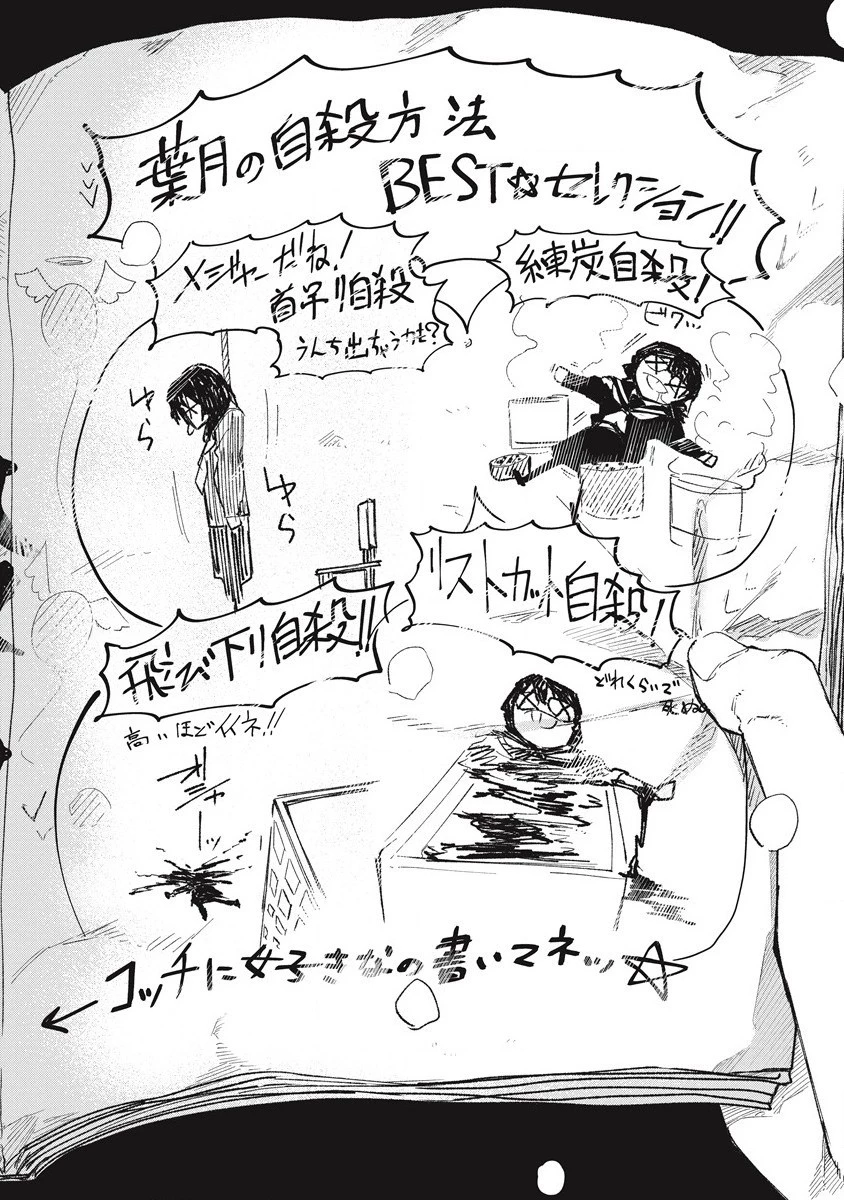 葉月の自殺方法
BEST☆セレクション!!
メジャーだね!
首吊り自殺
うんち出ちゃうかも?
練炭自殺!
ビクッ…
ゆら
ゆら
リストカット自殺!
どれくらいで
飛び下り自殺!!
高いほどイイネ!!
グシャーッ
コッチに好きなの書いてネッ☆